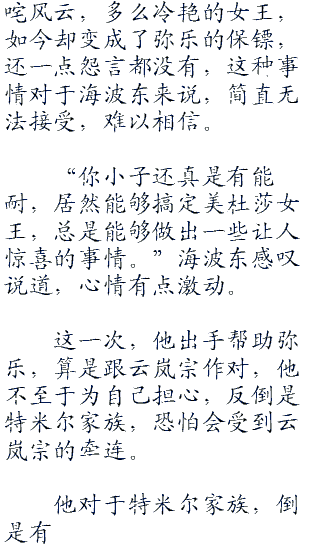 咤风云，多么冷艳的女王，
如今却变成了弥乐的保镖，
还一点怨言都没有，这种事
情对于海波东来说，简直无
法接受，难以相信。
“你小子还真是有能
耐，居然能够搞定美杜莎女
王，总是能够做出一些让人
惊喜的事情。”海波东感叹
说道，心情有点激动。
这一次，他出手帮助弥
乐，算是跟云岚宗作对，他
不至于为自己担心，反倒是
特米尔家族，恐怕会受到云
岚宗的牵连。
他对于特米尔家族，倒
是有